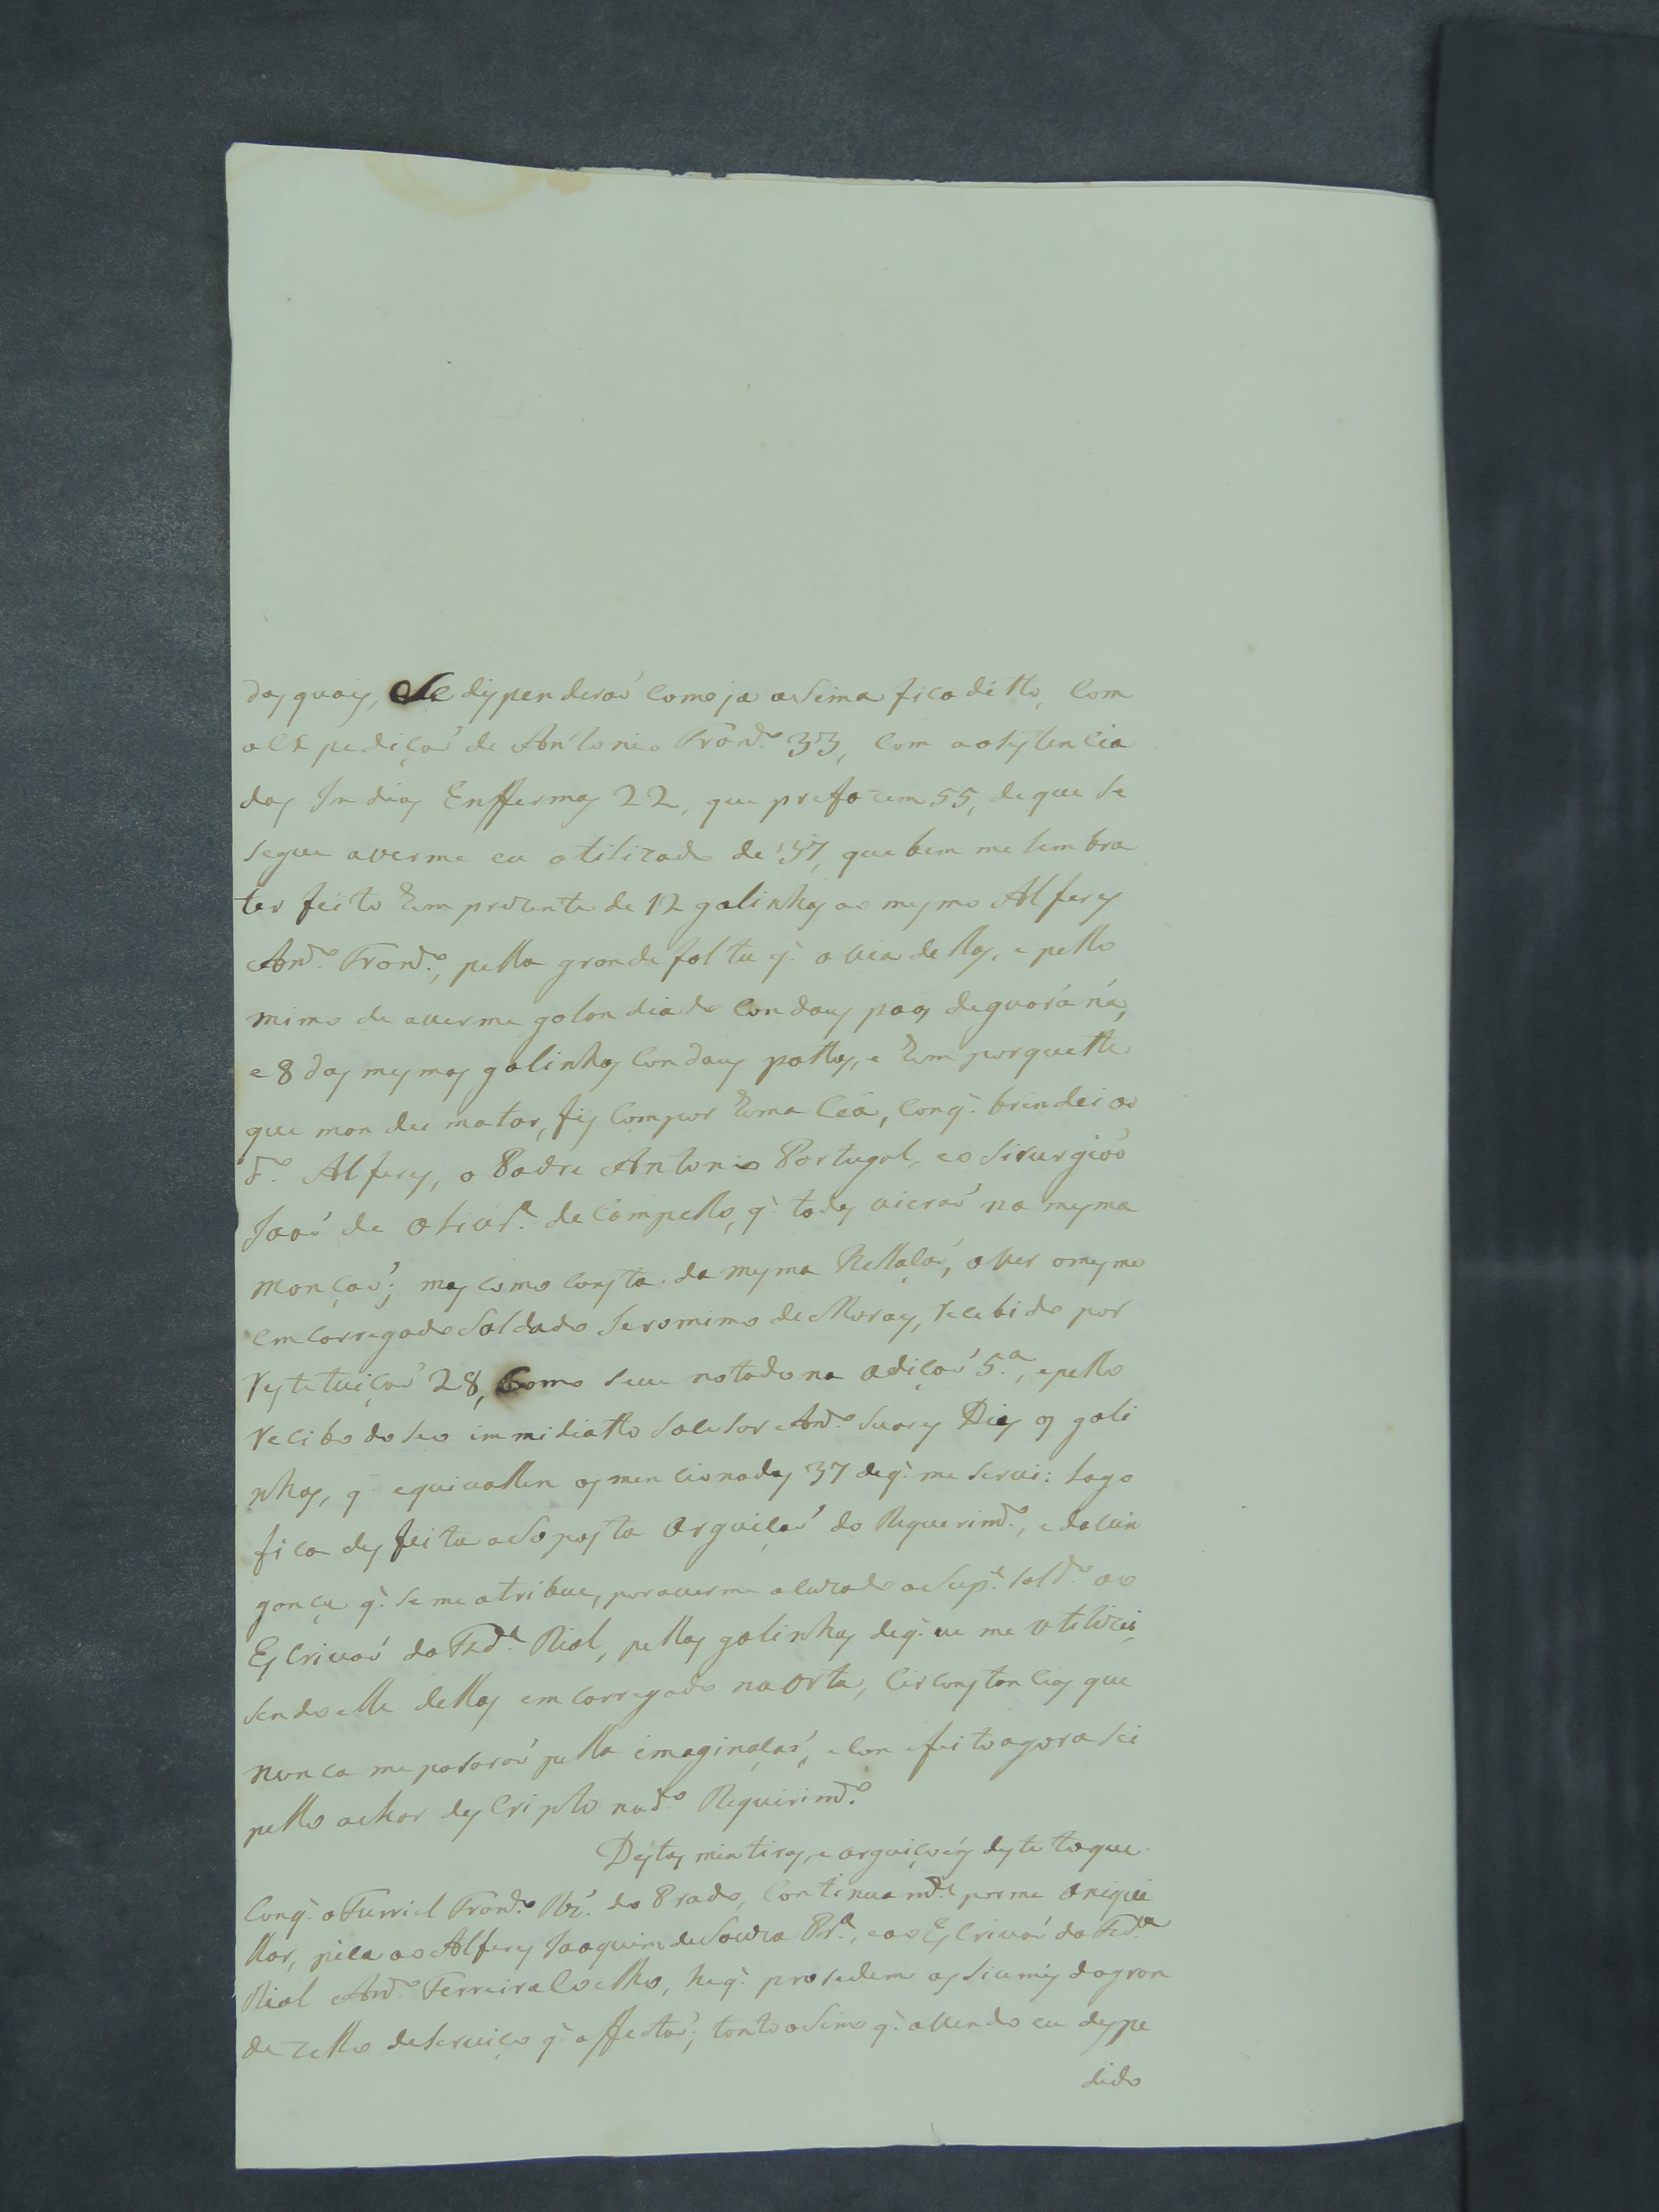 das quais, Se dispenderaõ como ja asima fica ditto, Com
a Expediçaõ de Antonio Franc.º 33, Com a asistencia
das Indias Enffermas 22, que prefazem 55, de que se
segue averme eu otilizado de 37, que bem me lembra
ter feito hum prezente de 12 galinhas ao mesmo Alferes
Ant.º Franc.º, pella grande falta q̃ avia dellas, e pello
mimo de averme galandiado Con daus paos de guaráná,
e 8 das mesmas galinhas Con daus pattos, e hum porquette
que mandei matar, fis Compor huma Cea, Con q̃ brindei ao
d.º Alferes, o Padre Antonio Portugal, e o Sirurgiaõ
Joaõ de Olivr.ª de Campello, q̃ todos vieraõ na mesma
monçaõ; mas como Consta da mesma Rellaçaõ, aver o mesmo
emCarregado Soldado Jeronimo de Moraes, recebido por
restetuiçaõ 28, Como seve notado na adiçaõ 5.ª, e pello
recibo do seo immidiatto Sacesor Ant.º Suares Dias as gali
nhas, q̃ equivallen as mencionadas 37 de q̃ me servi: Logo
fica desfeita a Soposta arguiçaõ do Requerim.to, e da vin
gança q̃ se me atribue, por averme alurado a Sup.e Sold.º ao
Escrivaõ da Fzd.ª Rial, pellas galinhas de q̃ eu me utilizei,
sendo elle dellas emCarregado na Orta, Circonstancias que
nunca me pasaraõ pella imaginaçaõ, e Con efeito agora sei
pello achar desCripto no d.º Requirim.to
Destas mentiras, e arguiçoẽs deste toque
Con q̃ o Furriel Franc.º Roĩz do Prado, Continuam.te por me aniqui
llar, pica ao Alferes Joaquim de Souza Pr.ª, e ao Escrivaõ da Fzd.ª
Rial Ant.º Ferreira Coelho, he q̃ prosedem as siumes da gran
de zello do serviço q̃ affectaõ; tanto asim q̃ avendo eu despe
dido